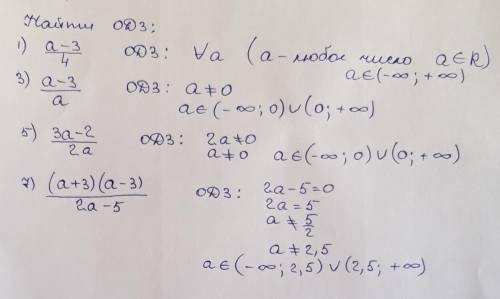 Найти ОДЗ:
1) (a-3)/4 ОДЗ: ∀a (a - любое число a∈R)
a∈(-∞; +∞)
3) (a-3)/a ОДЗ: a≠0
a∈(-∞; 0)∪(0; +∞)
5) (3a-2)/(2a) ОДЗ: 2a≠0
a≠0 a∈(-∞; 0)∪(0; +∞)
7) ((a+3)(a-3))/(2a-5) ОДЗ: 2a-5=0
2a=5
a≠5/2
a≠2,5
a∈(-∞; 2,5)∪(2,5; +∞)